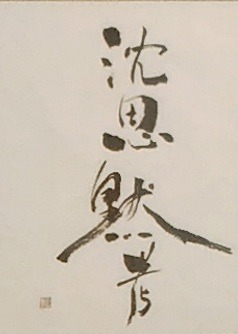 沈思默考